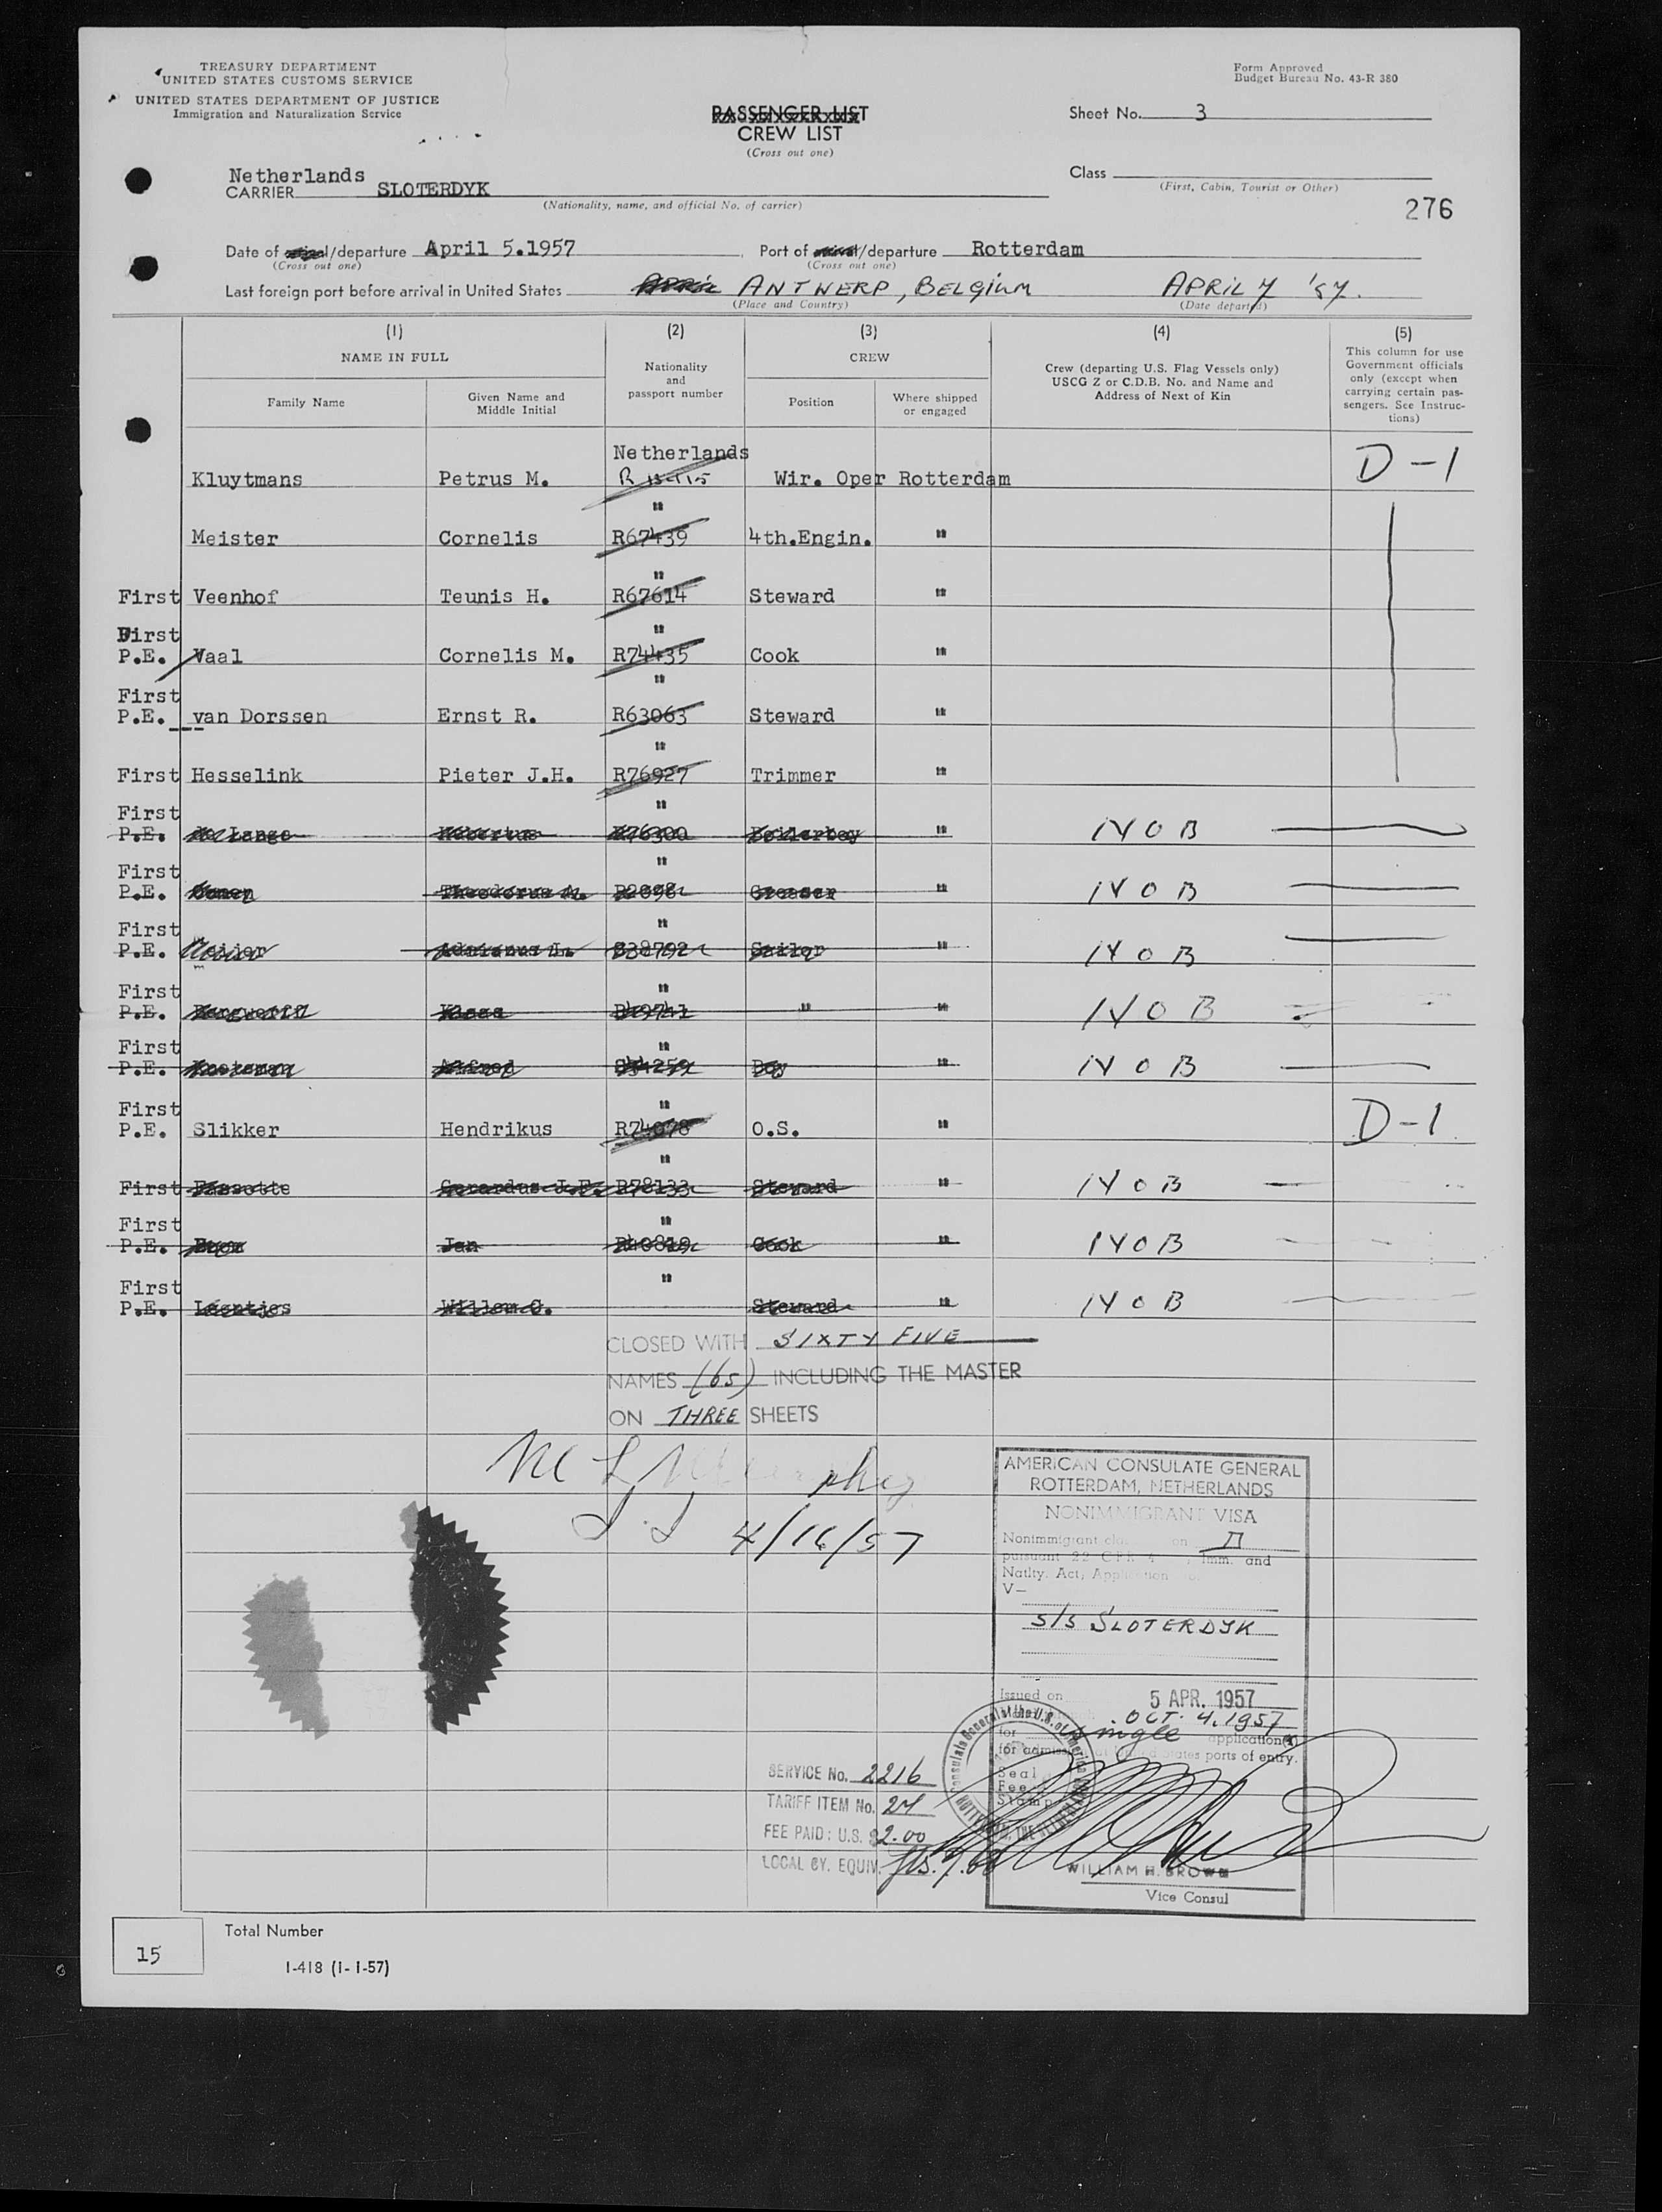 TREASURY DEPARTMENT
UNITED STATES CUSTOMS SERVICE
UNITED STATES DEPARTMENT OF JUSTICE
Immigration and Naturalization Service
Form Approved
Budget Bureau No. 43-R 380
PASSENGER LIST
CREW LIST
(Cross out one)
Sheet No. 3
Class
(First, Cabin, Tourist or Other)
276
Netherlands
CARRIER SLOTERDYK
(Nationality, name, and official No. of carrier)
Date of arrival/departure April 5.1957 Port of arrival/departure Rotterdam
(Cross out one) (Cross out one)
Last foreign port before arrival in United States April ANTWERP, BELGIUM APRIL 7 '57.
(Place and Country) (Date departed)
(1) (2) (3) (4) (5)
NAME IN FULL
Family Name
Given Name and Middle Initial
Nationality and passport number
CREW
Position
Where shipped or engaged
Crew (departing U.S. Flag Vessels only) USCG Z or C.D.B. No. and Name and Address of Next of Kin
This column for use Government officials only (except when carrying certain passengers. See Instructions)
Netherlands
Kluytmans Petrus M. Wir. Oper Rotterdam D-1
"
Meister Cornelis R67439 4th.Engin. "
"
First Veenhof Teunis H. R67614 Steward "
First "
P.E. Vaal Cornelis M. R74435 Cook "
First "
P.E. van Dorssen Ernst R. R63063 Steward "
"
First Hesselink Pieter J.H. R76927 Trimmer "
First "
P.E. de Lange Hubertus R76300 Boilerboy " NOB
First "
P.E. Theodorus A. Greaser " NOB
First "
P.E. Meijer Adrianus L. Sailor " NOB
First "
P.E. Klaas " " NOB
First "
P.E. Alfred Boy " NOB
First "
P.E. Slikker Hendrikus R74078 O.S. " D-1
"
First Gerardus J.F. R78133 Steward " NOB
First "
P.E. Jan Cook " NOB
First "
P.E. Leentjes Willem C. Steward " NOB
CLOSED WITH SIXTY FIVE
NAMES (65) INCLUDING THE MASTER
ON THREE SHEETS
4/16/57
AMERICAN CONSULATE GENERAL
ROTTERDAM, NETHERLANDS
NONIMMIGRANT VISA
V-
S/S SLOTERDYK
Issued on 5 APR. 1957
OCT. 4.1957
for single application(s)
for admission at United States ports of entry.
Seal
Fee
Stamp
SERVICE No. 2216
TARIFF ITEM No. 24
FEE PAID: U.S. $2.00
LOCAL CY. EQUIV.
WILLIAM H. BROWN
Vice Consul
15
Total Number
I-418 (1-1-57)